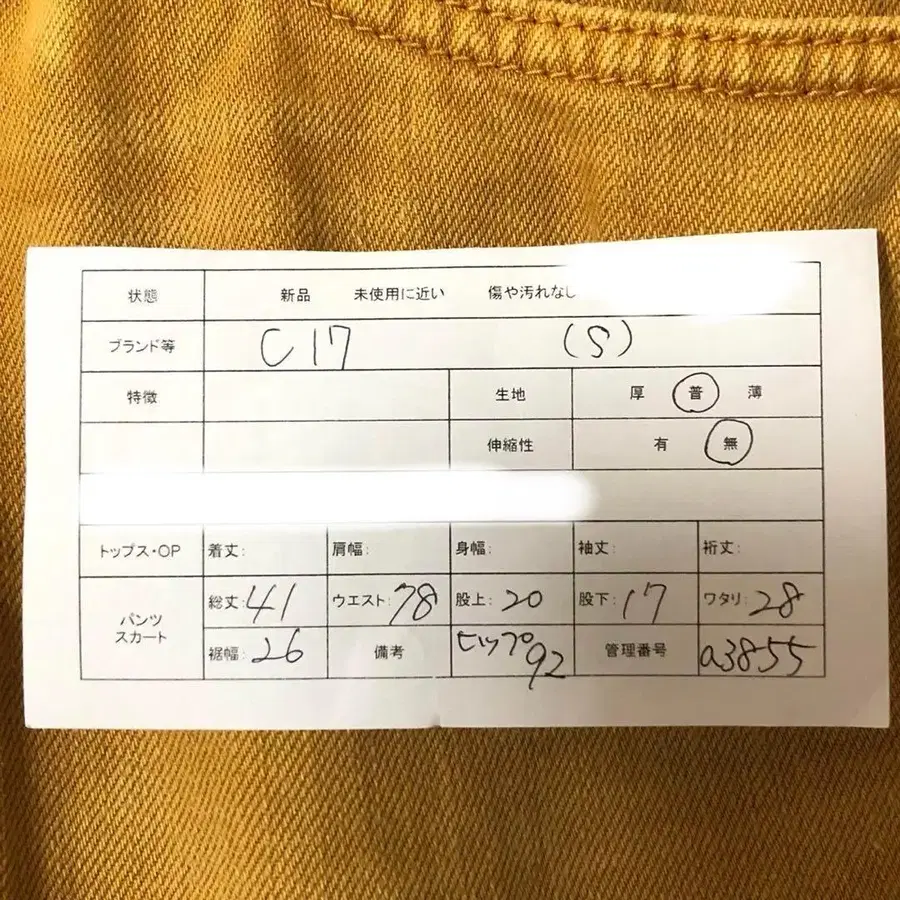 状態 新品 未使用に近い 傷や汚れなし
ブランド等 C17 (S)
特徴 生地 厚 普 薄
伸縮性 有 無
トップス・OP 着丈: 肩幅: 身幅: 袖丈: 裄丈:
パンツ スカート 総丈:41 ウエスト:78 股上:20 股下:17 ワタリ:28
裾幅:26 備考 ヒップ92 管理番号 a3855